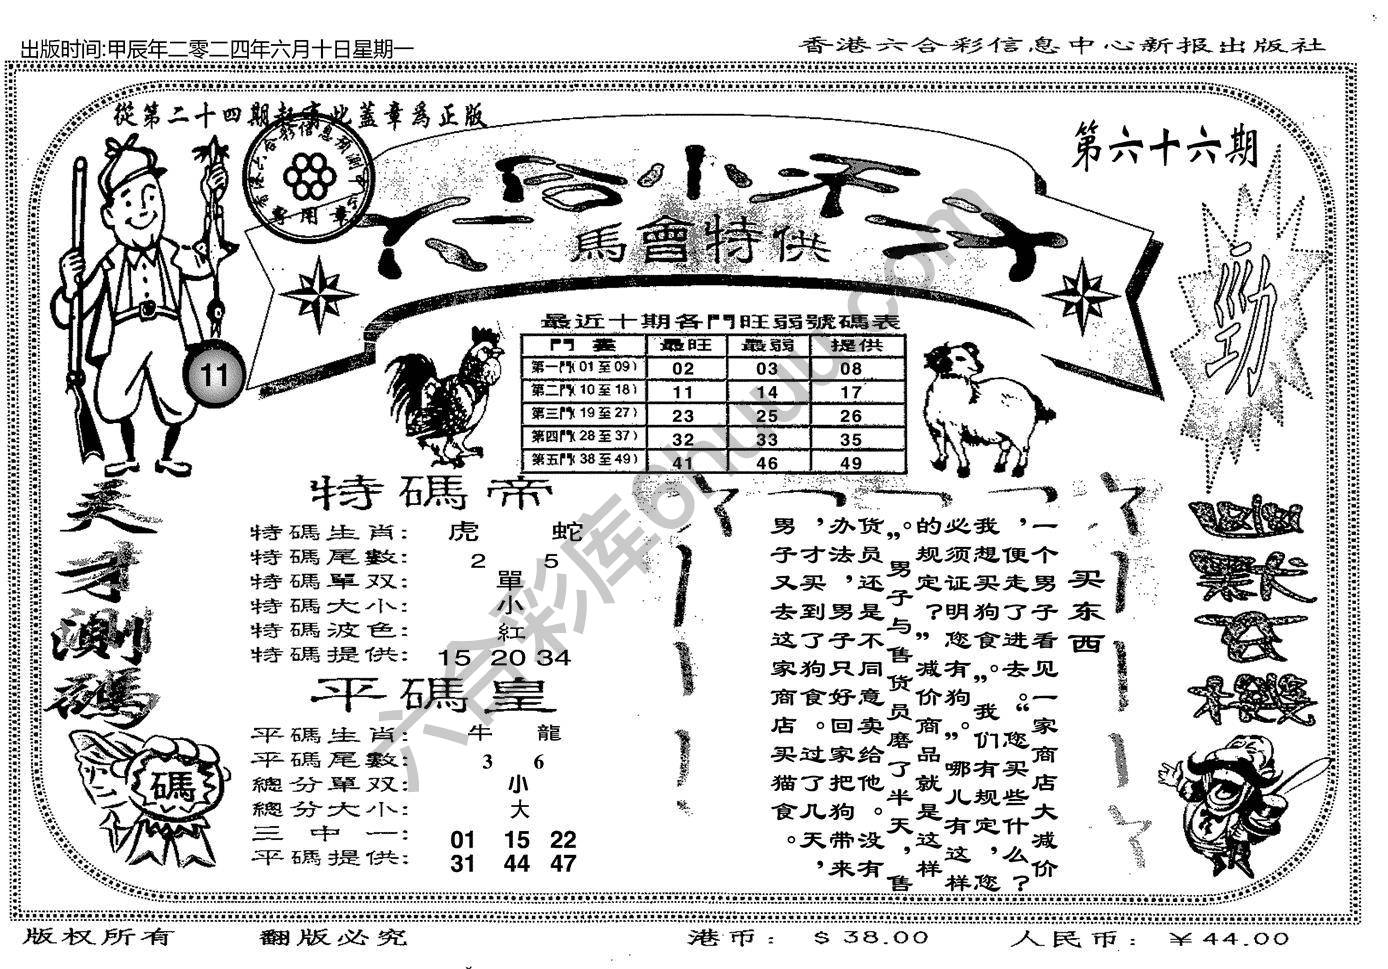 出版时间:甲辰年二零二四年六月十日星期一
香港六合彩信息中心新报出版社
從第二十四期起寄此蓋章爲正版
第六十六期
馬會特供
勁
11
最近十期各門旺弱號碼表
門 最旺 最弱 提供
第一門(01至09) 02 03 08
第二門(10至18) 11 14 17
第三門(19至27) 23 25 26
第四門(28至37) 32 33 35
第五門(38至49) 41 46 49
天才測碼
碼
特碼帝
特碼生肖: 虎 蛇
特碼尾數: 2 5
特碼單双: 單
特碼大小: 小
特碼波色: 紅
特碼提供: 15 20 34
平碼皇
平碼生肖: 牛 龍
平碼尾數: 3 6
總分單双: 小
總分大小: 大
三中一: 01 15 22
平碼提供: 31 44 47
买东西
一个男子看见一家商店大减价
,便走了进去。“您买些什么?
我想买狗食。”我们有规定,您
必须证明您有狗。”哪儿有这样
的规定?”减价商品就是这样
。”男子与售货员磨了半天,售
货员还是不同意卖给他。没有
办法,男子只好回家把狗带来
,才买到了狗食。过了几天,
男子又去这家商店买猫食。
六合彩库6huu.com
版权所有
翻版必究
港币: $38.00
人民币: ¥44.00